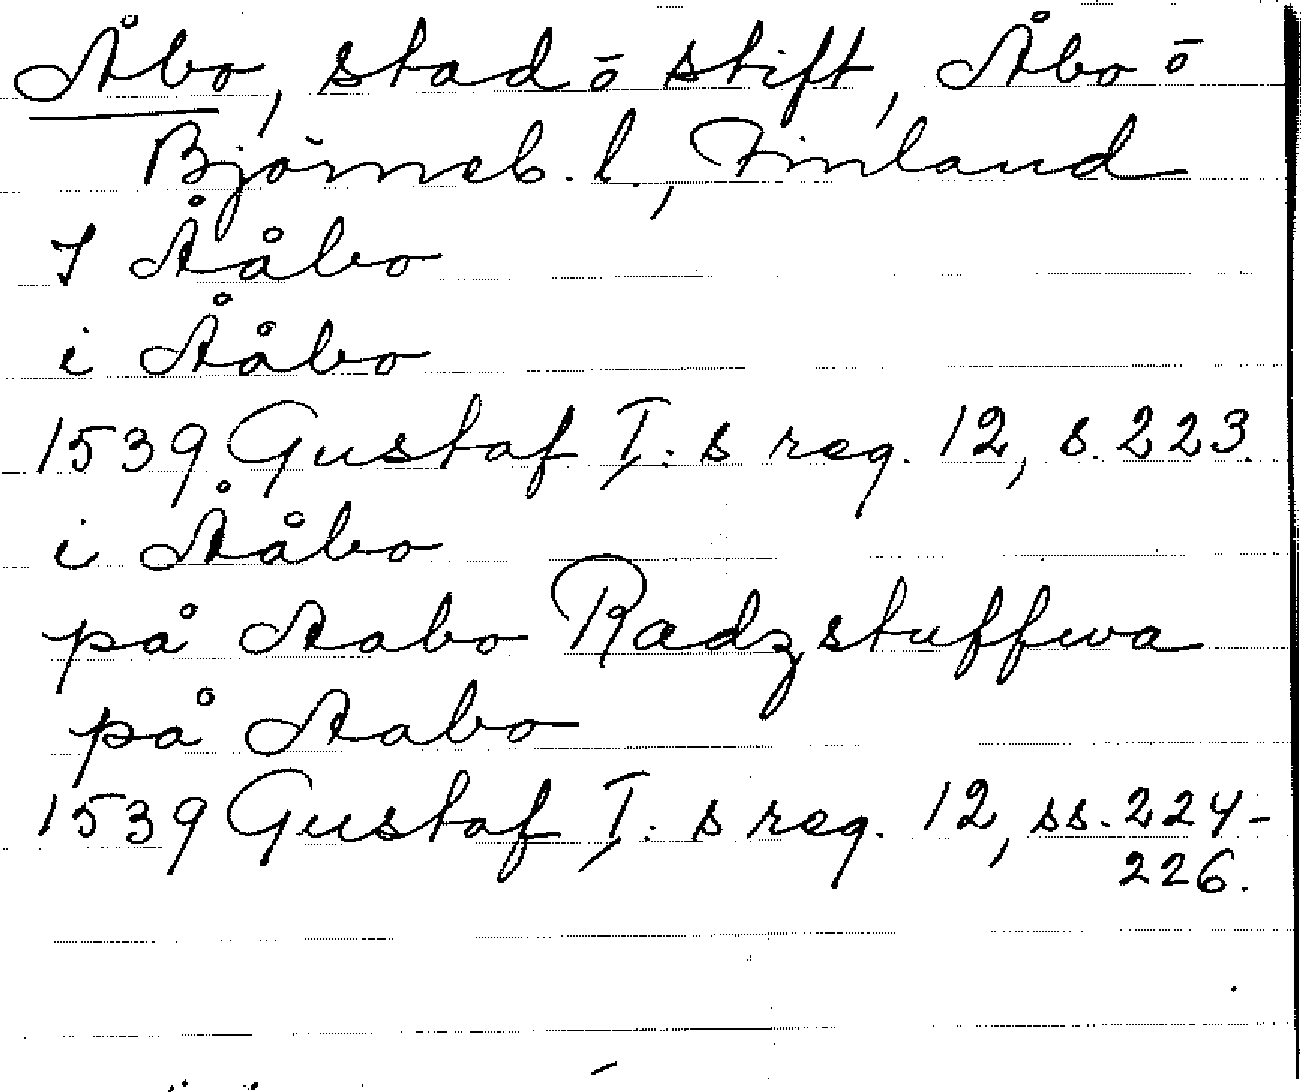 Åbo, stad ō stift, Åbo ō
Björneb. l., Finland
I Ååbo
i Ååbo
1539 Gustaf I:s reg. 12, s. 223.
i Ååbo
på Aabo Radzstuffwa
på Aabo
1539 Gustaf I:s reg. 12, ss. 224-
226.